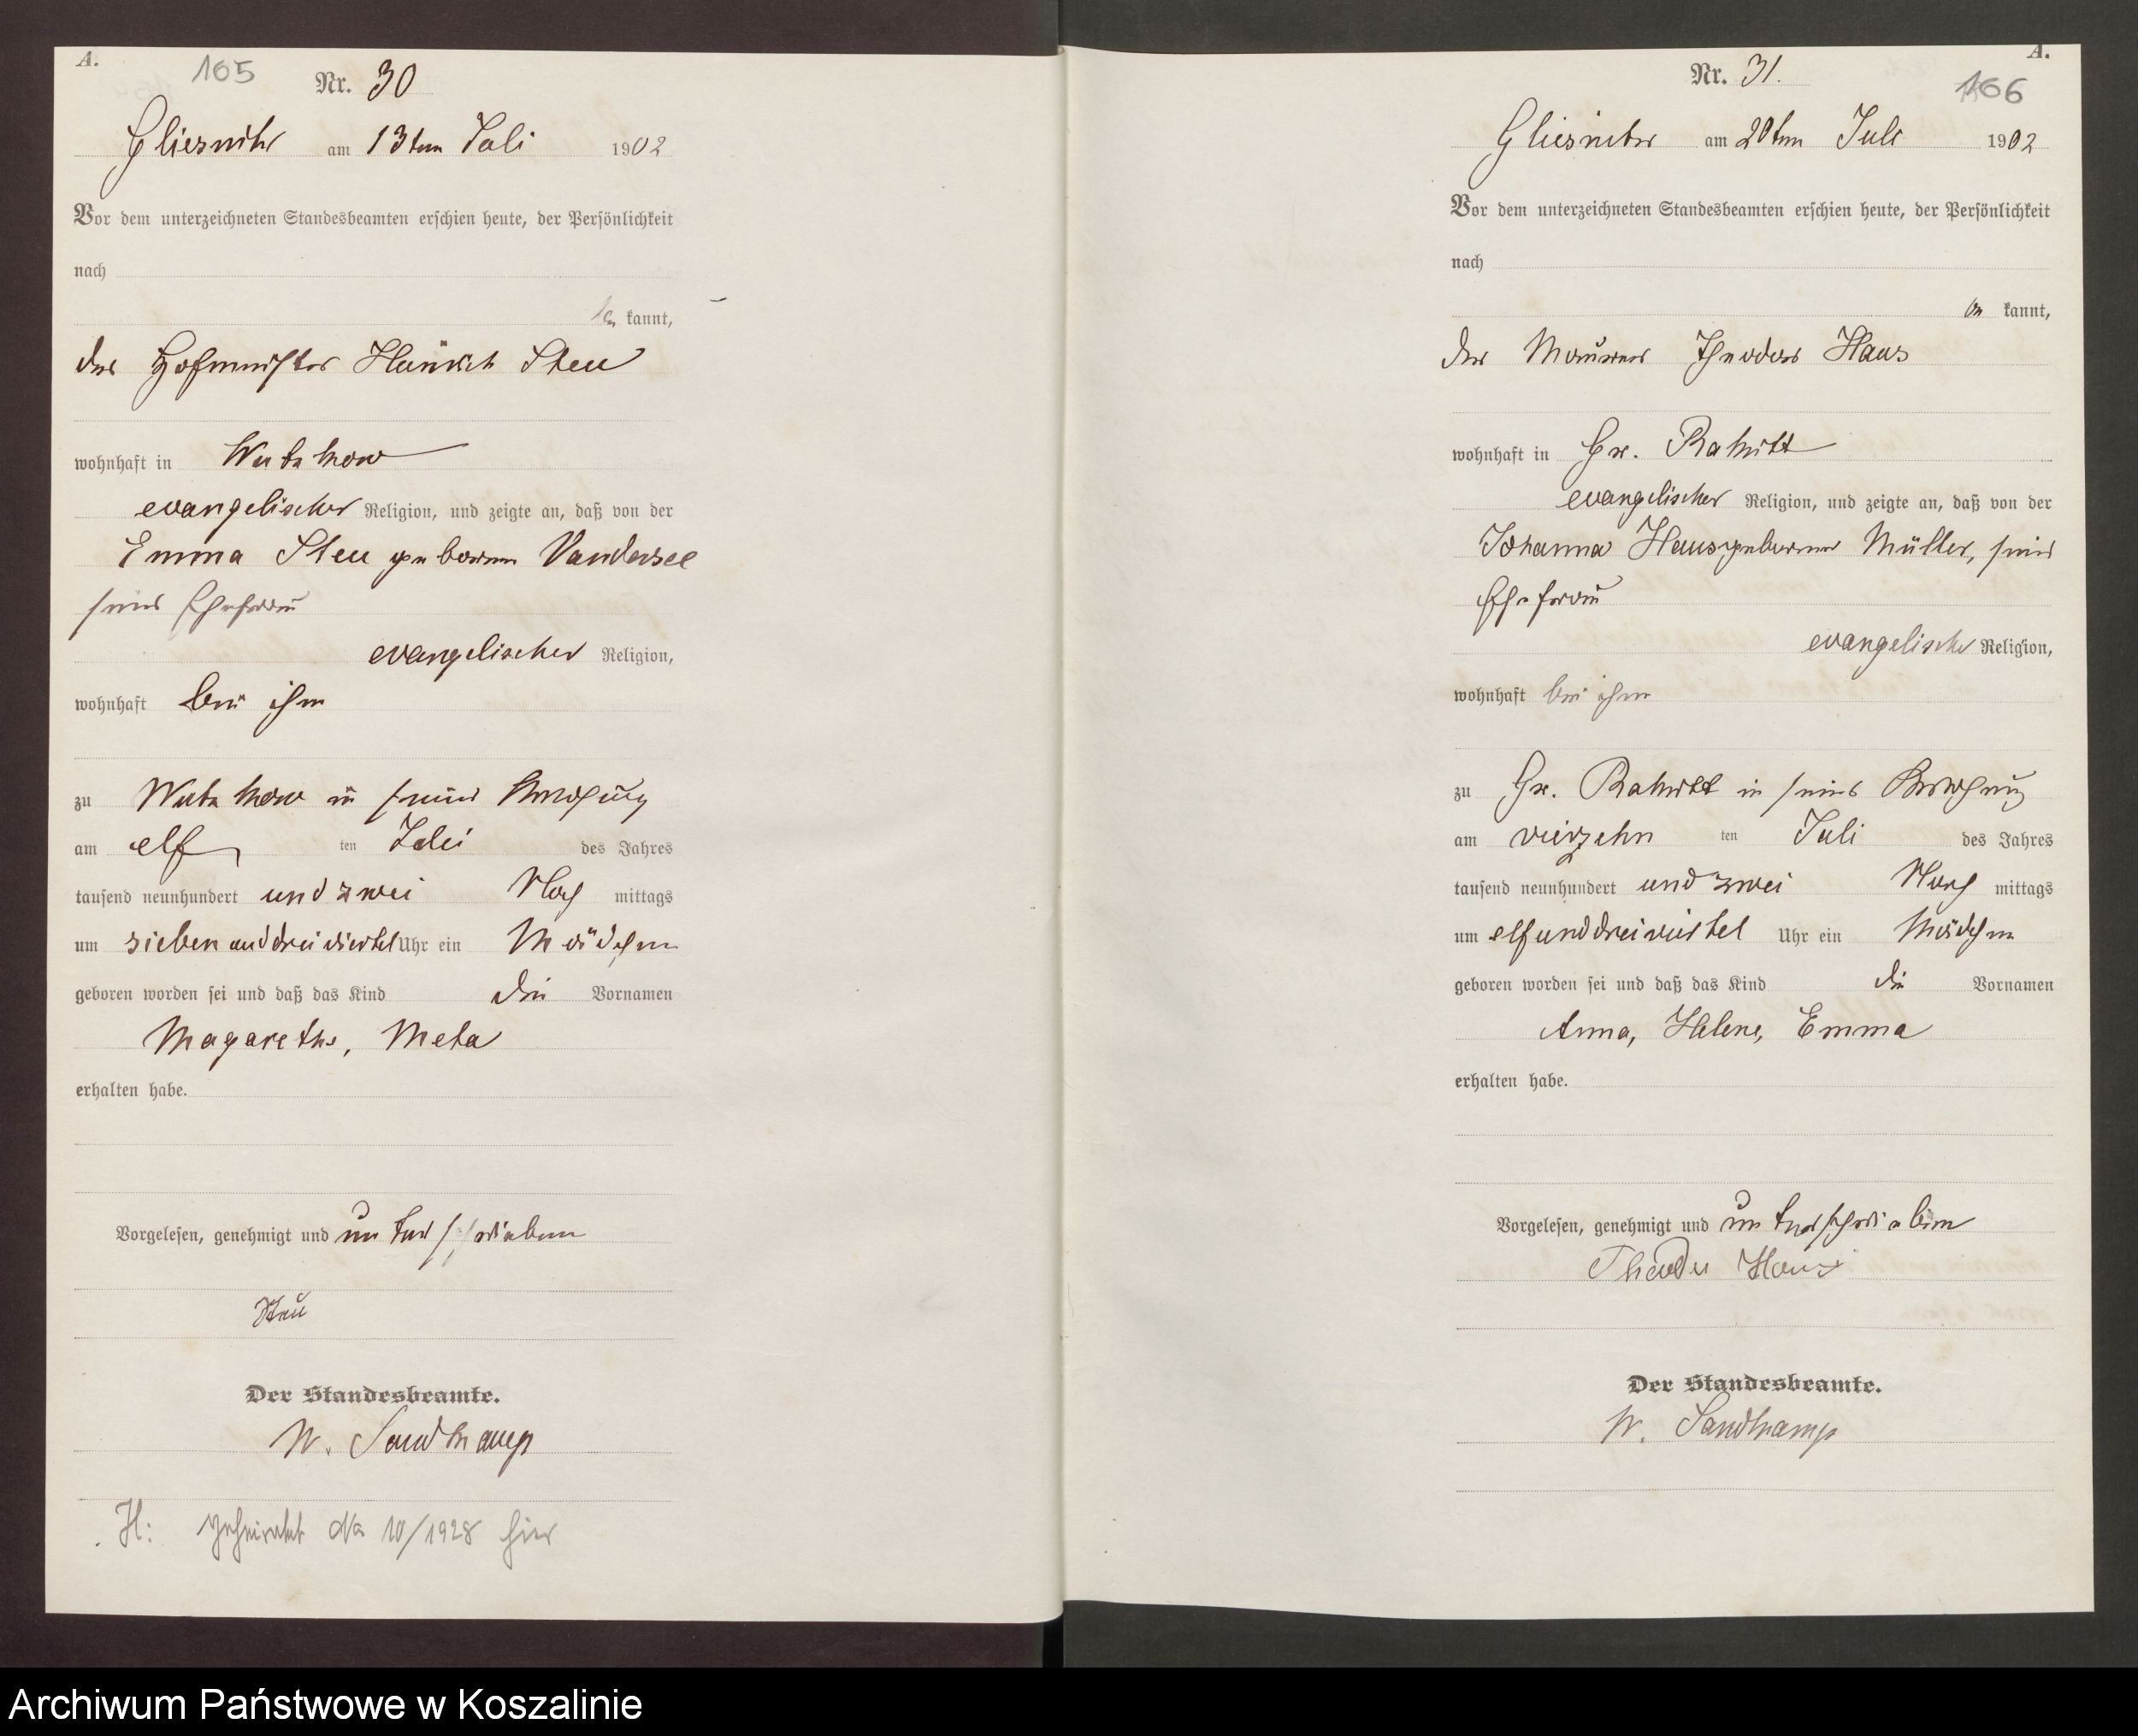 A.
105
Nr. 30
Gliesnitz am 13ten Juli 1902
Vor dem unterzeichneten Standesbeamten erschien heute, der Persönlichkeit
nach
be kannt,
der Hofmeister Heinrich Steu
wohnhaft in Wutzkow
evangelischer Religion, und zeigte an, daß von der
Emma Steu geborenen Vandersee
seiner Ehefrau
evangelischer Religion,
wohnhaft bei ihm
zu Wutzkow in seiner Wohnung
am elf ten Juli des Jahres
tausend neunhundert und zwei Nach mittags
um sieben und drei viertel Uhr ein Mädchen
geboren worden sei und daß das Kind die Vornamen
Magarethe, Meta
erhalten habe.
Vorgelesen, genehmigt und unterschrieben
Steu
Der Standesbeamte.
W. Sandkamp
H: geheiratet No 10/1928 hier
A.
Nr. 31.
166
Gliesnitz am 20ten Juli 1902
Vor dem unterzeichneten Standesbeamten erschien heute, der Persönlichkeit
nach
be kannt,
der Maurer Theodor Haus
wohnhaft in Gr. Rakitt
evangelischer Religion, und zeigte an, daß von der
Johanna Haus geborenen Müller, seiner
Ehefrau
evangelischer Religion,
wohnhaft bei ihm
zu Gr. Rakitt in seiner Wohnung
am vierzehn ten Juli des Jahres
tausend neunhundert und zwei Nach mittags
um elf und dreiviertel Uhr ein Mädchen
geboren worden sei und daß das Kind die Vornamen
Anna, Helene, Emma
erhalten habe.
Vorgelesen, genehmigt und unterschrieben
Theodor Haus
Der Standesbeamte.
W. Sandkamp
Archiwum Państwowe w Koszalinie